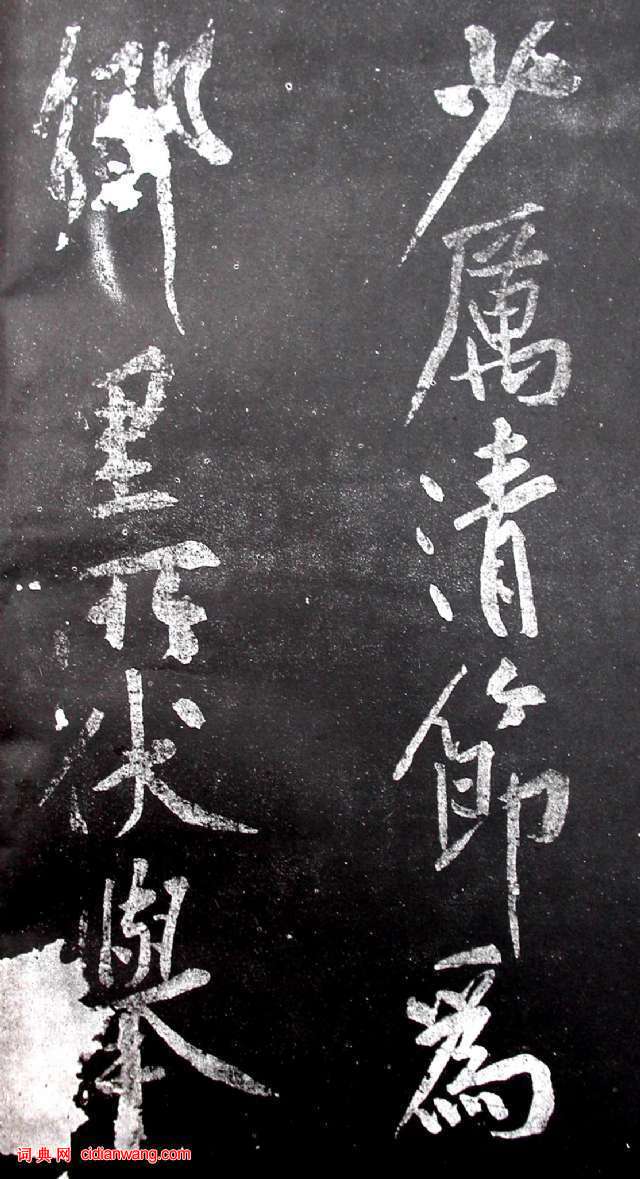 少厲清節為
鄉里所伏舉
词典网 cidianwang.com